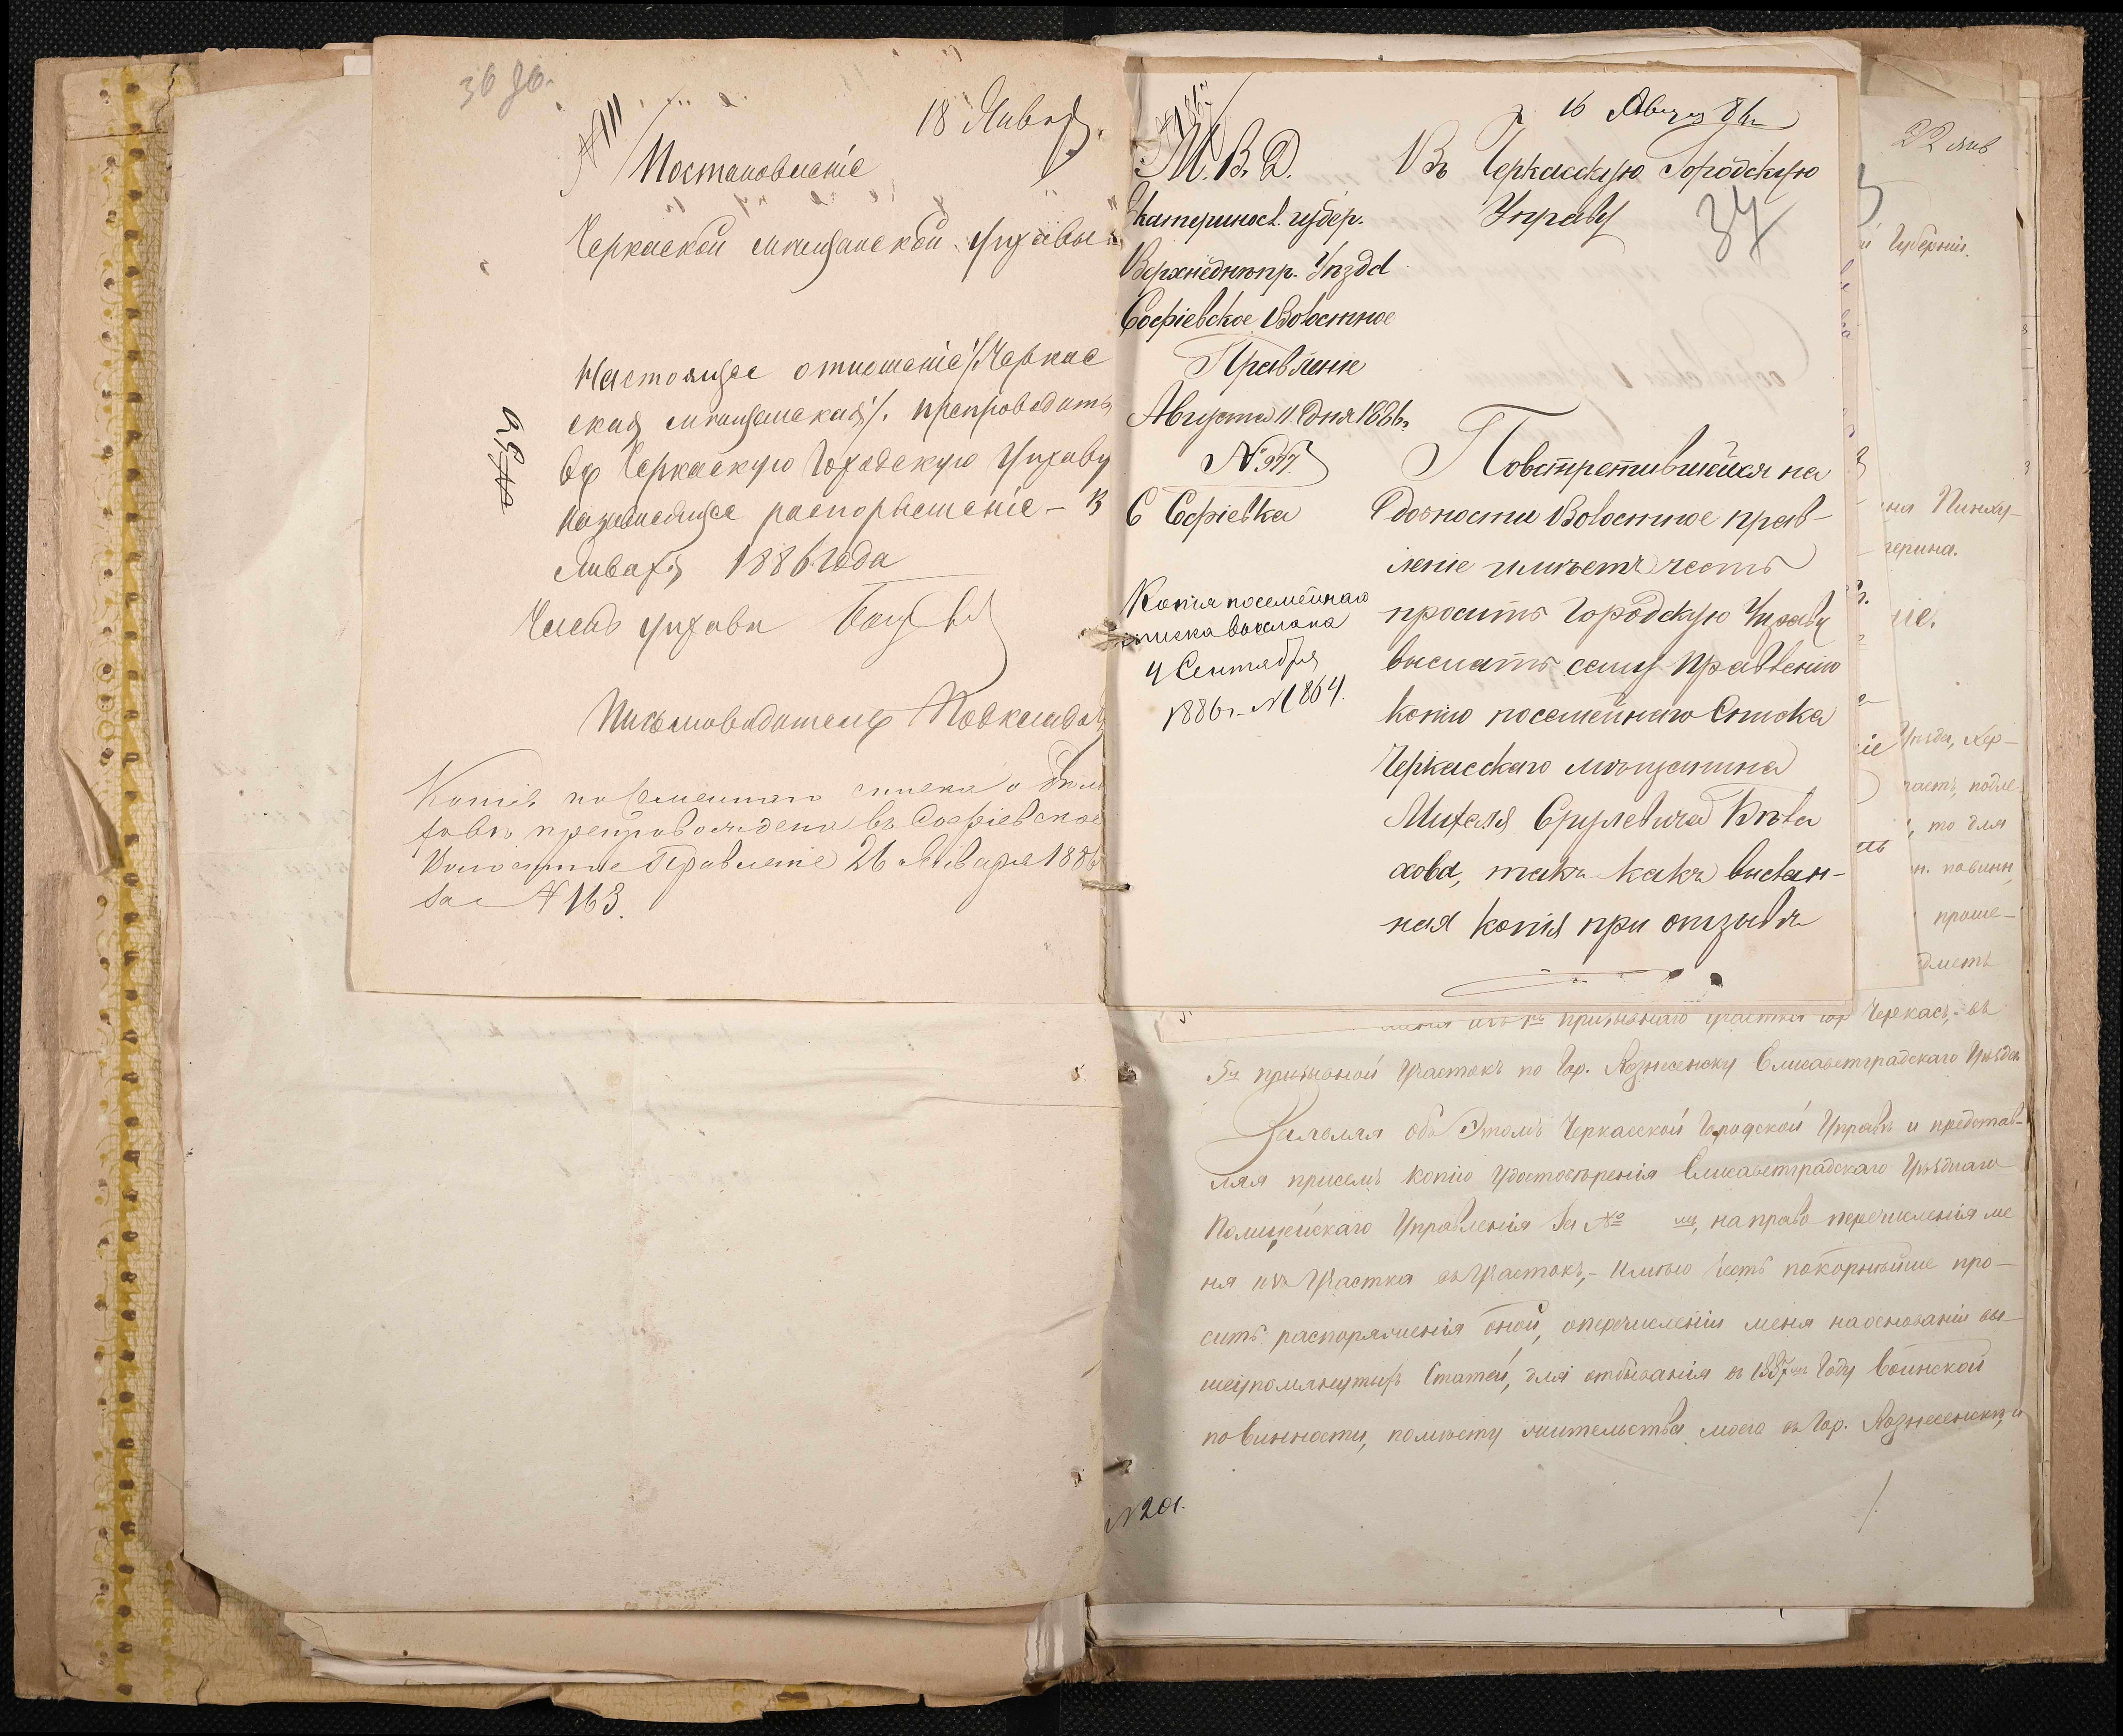 36 об.
№ 111
18 Января.
Постановленіе
Черкаской мѣщанской управы
Настоящее отношеніе /Черкас
ская мѣщанская/. препроводить
въ Черкаскую Городскую Управу
распорѣженіе – 13
Января 1886 года
Членъ управы
Письмоводитель
№ 35
Копія посемейнаго списка о
препровождена въ Софіевское
Волостное Правленіе 26 января 1886
за № 163.
16 Авгус 86 г
М. В. Д.
Екатериносл. губер.
Верхнеднѣпр. Уѣзда
Софіевское Волостное
Правленіе
Августа 11 дня 1886 г.
№ 977.
С Софіевка
Копія посемейнаго
списка выслана
4 Сентября
1886 г. № 864.
Въ Черкасскую Городскую
Управу
37
Повстретившейся на
добности Волостное прав-
леніе имѣетъ честь
просить Городскую Управу
выслать сему Правленію
копію посемейнаго Списка
Черкасскаго мѣщанина
Михеля Срулевича
хова, такъ какъ выслан-
ная копія при отзывѣ
22 янв
Губерніи.
Пинху-
герина.
ніе.
Уѣзда, Хер-
часть, подле
, то для
н. повинн,
проше-
призывнаго участка гор Черкасъ,- въ
5й призывной Участокъ по Гор. Вознесенску Елисаветградскаго Уѣзда
Заявляя объ Этомъ Черкасской Городской Управѣ и представ-
ляя присемъ копію Удостовѣренія Елисаветградскаго Уѣзднаго
Полицейскаго Управленія за № , на право перечисленія ме
ня изъ Участка въ Участокъ,- имѣю честь покорнѣйше про-
сить распоряженія оной, оперечисленіи меня наоснованіи вы-
шеупомянутыхъ Статей, для отбыванія въ 1887мъ Году Воинской
повинности, помѣсту жительства моего въ Гор. Вознесенскѣ, и
№ 201.